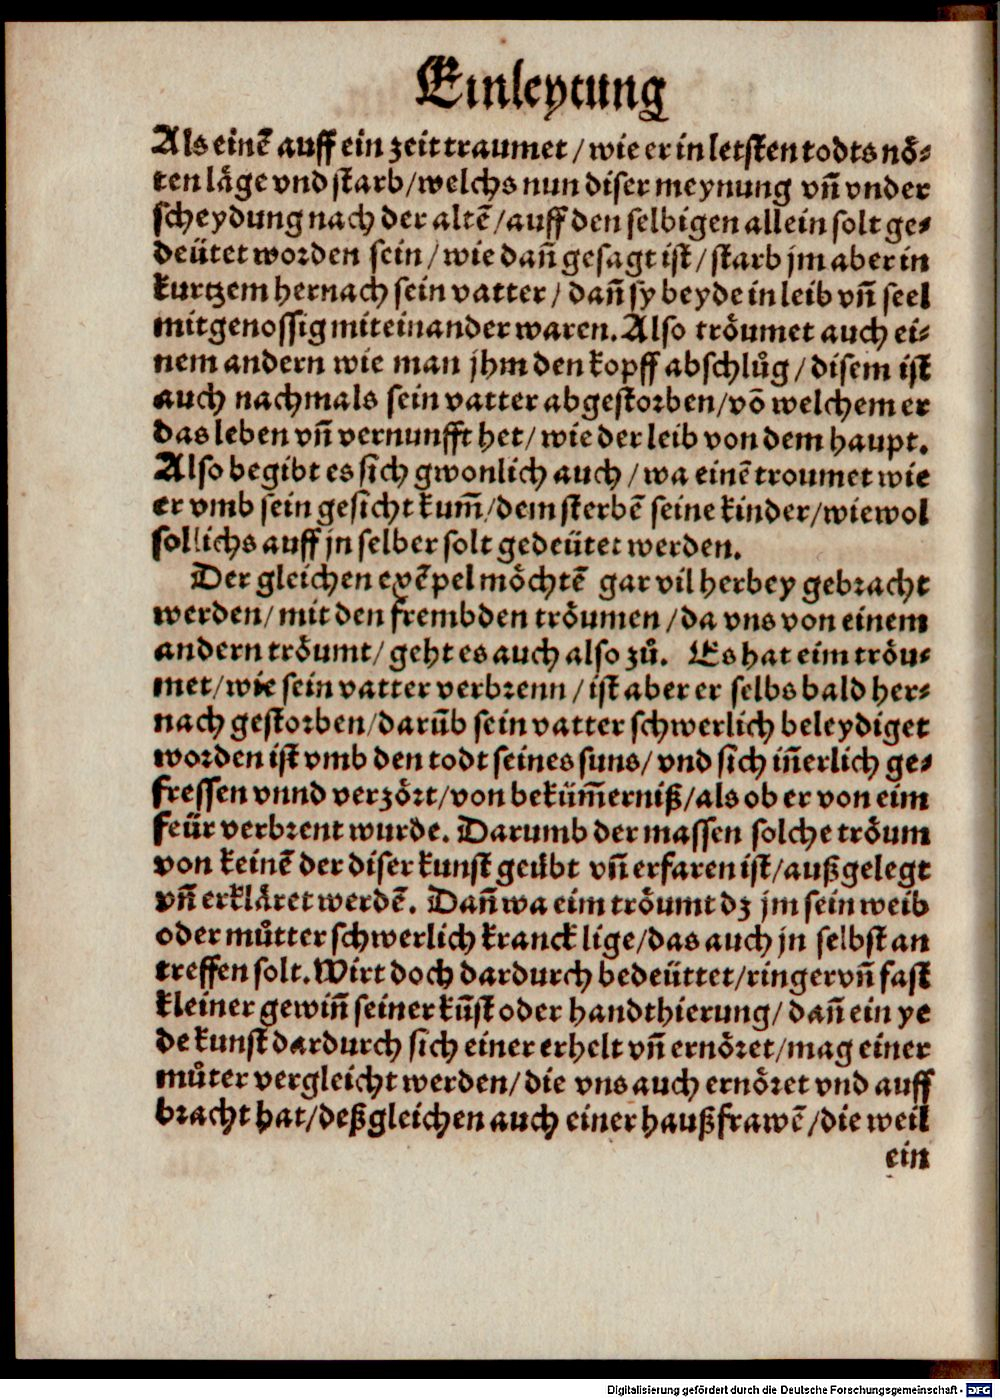 Einleytung
Als einē auff ein zeit traumet / wie er in letsten todts nö⸗
ten läge vnd starb/welchs nun diser meynung vñ vnder
scheydung nach der altē /auff den selbigen allein solt ge⸗
deütet worden sein / wie dañ gesagt ist / starb jm aber in
kurtzem hernach sein vatter / dañ sy beyde in leib vñ seel
mitgenossig miteinander waren. Also tröumet auch ei⸗
nem andern wie man jhm den kopff abschlůg / disem ist
auch nachmals sein vatter abgestorben/vō welchem er
das leben vñ vernunfft het/ wie der leib von dem haupt.
Also begibt es sich gwonlich auch / wa einē troumet wie
er vmb sein gesicht kum̄/dem sterbē seine kinder/wiewol
sollichs auff jn selber solt gedeütet werden.
Der gleichen exēpel möchtē gar vil herbey gebracht
werden/ mit den frembden tröumen / da vns von einem
andern tröumt/ geht es auch also zů. Es hat eim tröu⸗
met/wie sein vatter verbrenn / ist aber er selbs bald her⸗
nach gestorben/darūb sein vatter schwerlich beleydiget
worden ist vmb den todt seines suns/ vnd sich iñerlich ge⸗
fressen vnnd verzört/von beküm̄erniß/als ob er von eim
feür verbrent wurde. Darumb der massen solche tröum
von keinē der diser kunst geübt vñ erfaren ist/außgelegt
vñ erkläret werdē. Dañ wa eim tröumt dz jm sein weib
oder můtter schwerlich kranck lige/das auch jn selbst an
treffen solt. Wirt doch dardurch bedeüttet/ringer vñ fast
kleiner gewiñ seiner kūst oder handthierung/ dañ ein ye
de kunst dardurch sich einer erhelt vñ ernöret/mag einer
můter vergleicht werden/ die vns auch ernöret vnd auff
bracht hat/deßgleichen auch einer haußfrawē /die weil
ein
Digitalisierung gefördert durch die Deutsche Forschungsgemeinschaft - DFG